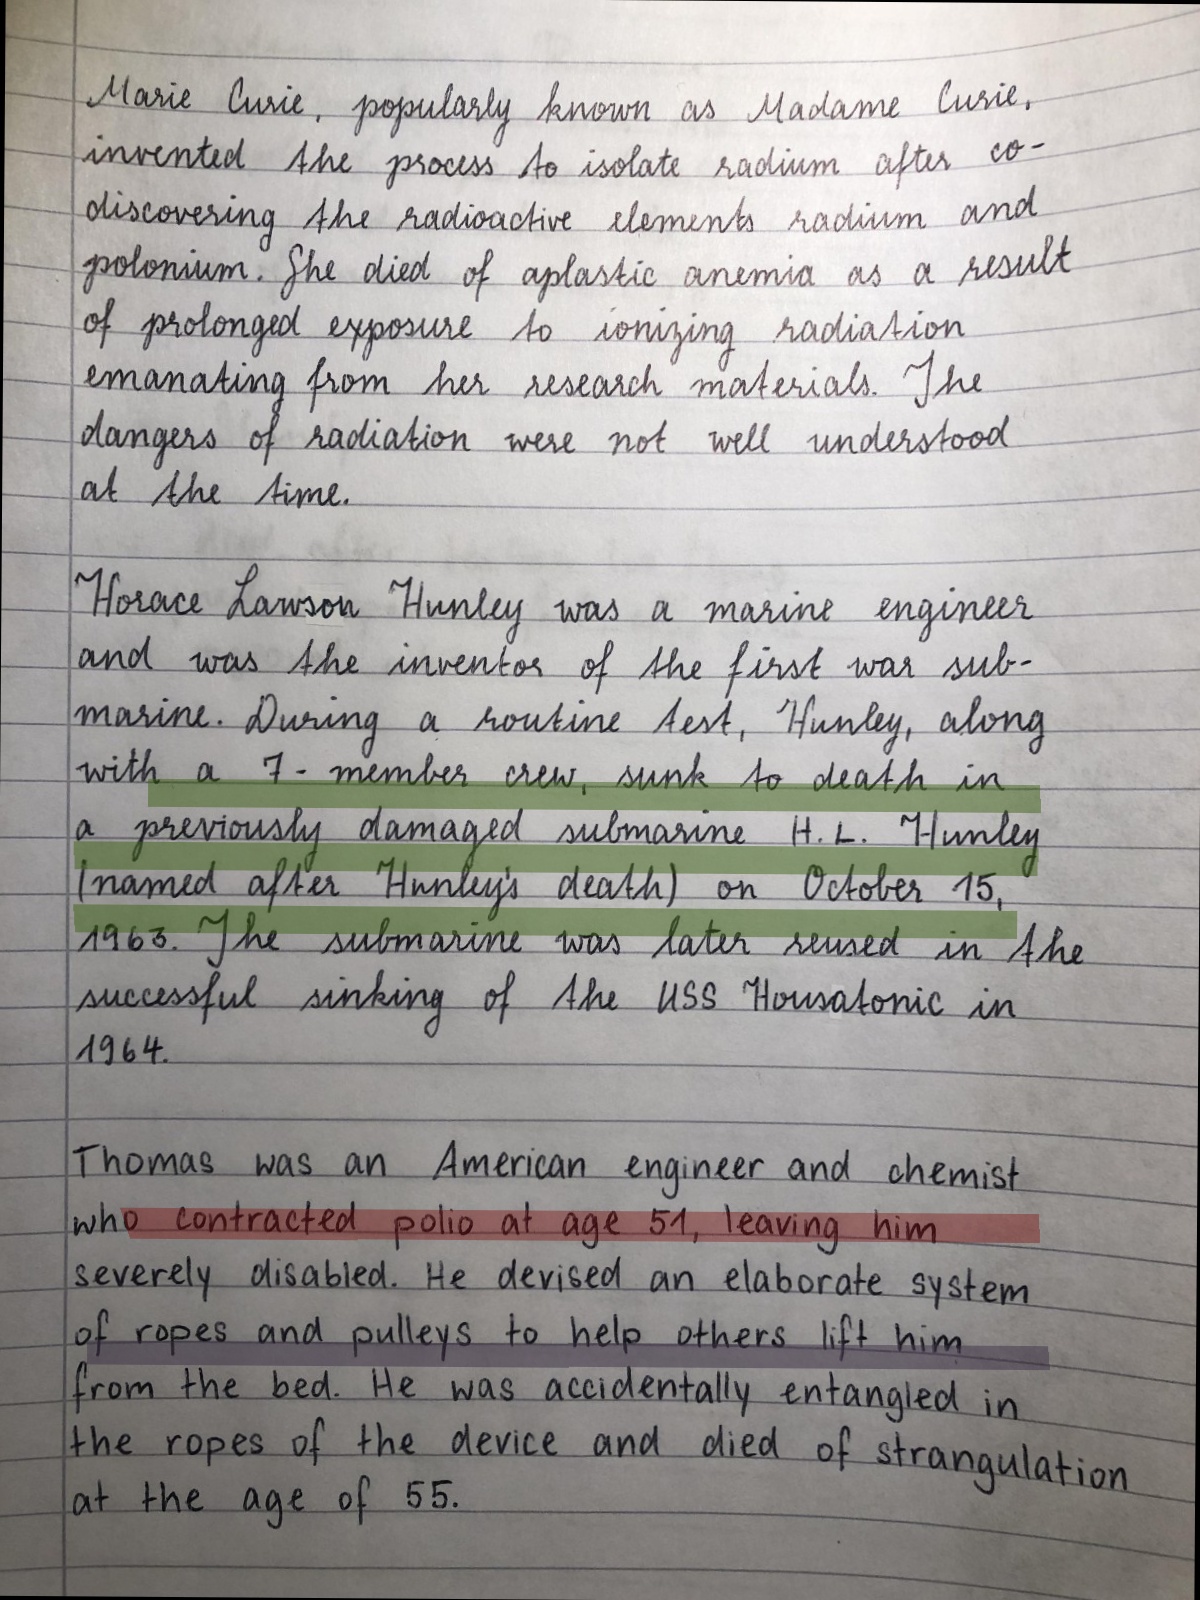 Marie Curie, popularly known as Madame Curie,
invented the process to isolate radium after co-
discovering the radioactive elements radium and
polonium. She died of aplastic anemia as a result
of prolonged exposure to ionizing radiation
emanating from her research materials. The
dangers of radiation were not well understood
at the time.
Horace Lawson Hunley was a marine engineer
and was the inventor of the first war sub-
marine. During a routine test, Hunley, along
with a 7-member crew, sunk to death in
a previously damaged submarine H.L. Hunley
(named after Hunley's death) on October 15,
1963. The submarine was later reused in the
successful sinking of the USS Housatonic in
1964.
Thomas was an American engineer and chemist
who contracted polio at age 51, leaving him
severely disabled. He devised an elaborate system
of ropes and pulleys to help others lift him
from the bed. He was accidentally entangled in
the ropes of the device and died of strangulation
at the age of 55.